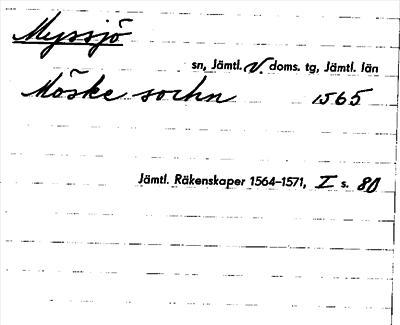 Myssjö
sn, Jämtl. V. doms. tg, Jämtl. län
Möske sochn 1565
Jämtl. Räkenskaper 1564–1571, I s. 80